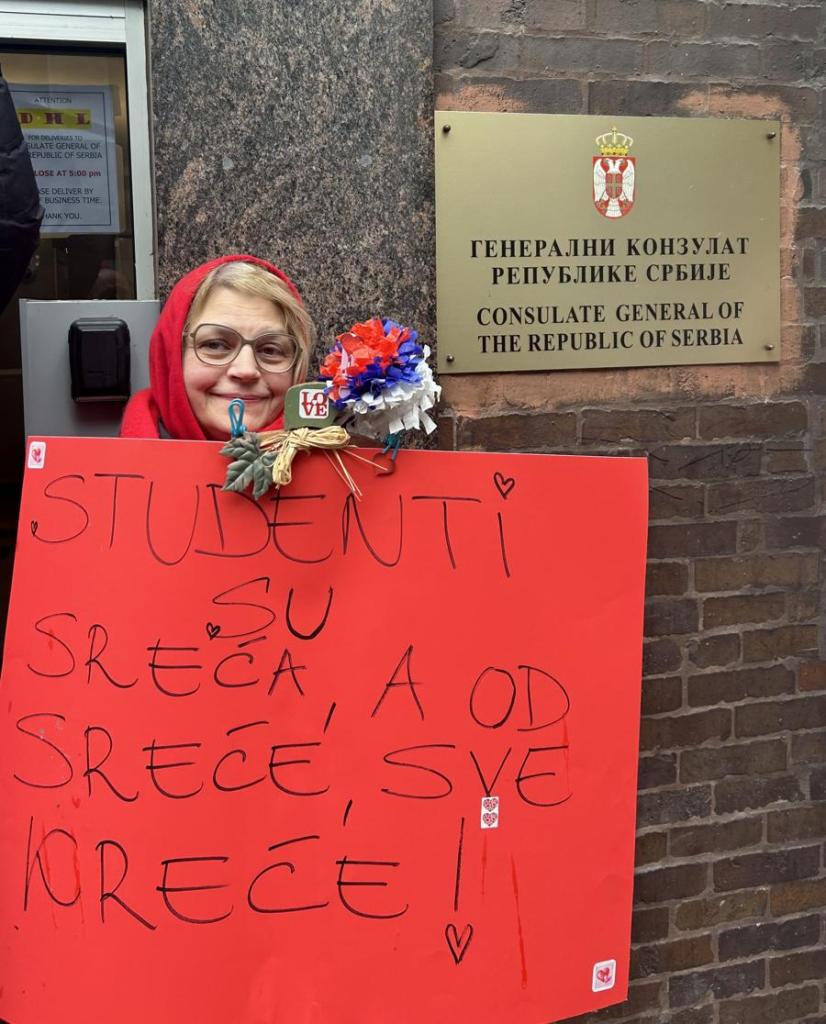 ATTENTION
DHL
FOR DELIVERIES TO
SULATE GENERAL OF
REPUBLIC OF SERBIA
LOSE AT 5:00 pm
SE DELIVER BY
BUSINESS TIME.
HANK YOU.
ГЕНЕРАЛНИ КОНЗУЛАТ
РЕПУБЛИКЕ СРБИЈЕ
CONSULATE GENERAL OF
THE REPUBLIC OF SERBIA
LOVE
STUDENTI
SU
SREĆA, A OD
SREĆE, SVE
KREĆE!